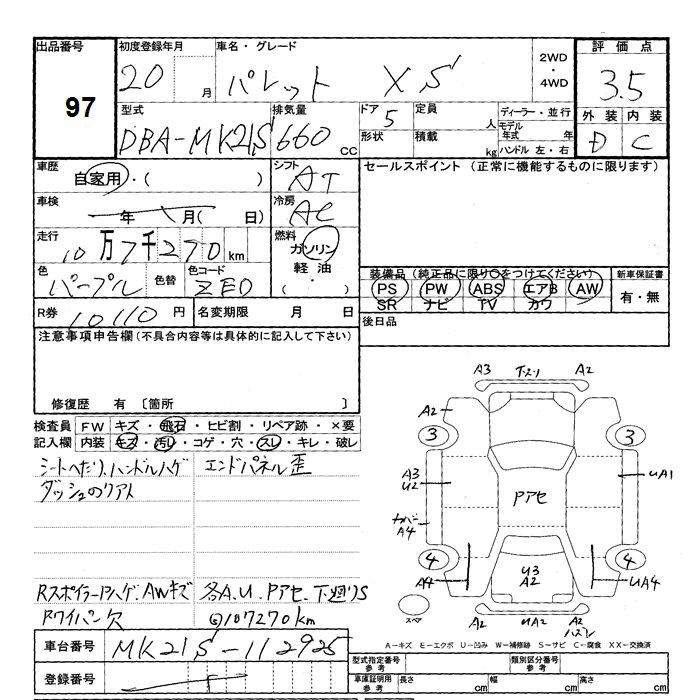 出品番号
97
初度登録年月
20 月
車名・グレード
パレット XS
2WD
・
4WD
評価点
3.5
外装 内装
D C
型式
DBA-MK21S
排気量
660 cc
ドア
5
定員
人
形状
積載
kg
ディーラー・並行
モデル年式 年
ハンドル 左・右
車歴
自家用・( )
シフト
AT
車検
年 月( 日)
冷房
AC
走行
10万7千270km
燃料
ガソリン
軽油
( ・ )
色
パープル
色替
色コード
ZE0
R券 10110 円
名変期限 月 日
セールスポイント (正常に機能するものに限ります)
装備品(純正品に限り○をつけてください)
PS PW ABS エアB AW
SR ナビ TV カワ
新車保証書
有・無
後日品
注意事項申告欄(不具合内容等は具体的に記入して下さい)
修復歴 有 〔箇所 〕
検査員記入欄
FW キズ・飛石・ヒビ割・リペア跡・×要
内装 キズ・汚レ・コゲ・穴・スレ・キレ・破レ
シートヘたり、ハンドルハゲ
エンドパネル歪
ダッシュのリアト
Rスポイラーハゲ、AWキズ
各A.U.Pアセ.下廻りS
Rワイパー欠
107270km
車台番号 MK21S-112925
登録番号
A3 下スリ A2
A2
3 3
A3
U2
UA1
Pアセ
A4
4 4
A4
U3
A2
UA4
スペア
A2 UA2 A2
A-キズ E-エクボ U-凹み W-補修跡 S-サビ C-腐食 XX-交換済
型式指定番号
参考
類別区分番号
参考
車庫証明用
参考
長さ cm
幅 cm
高さ cm